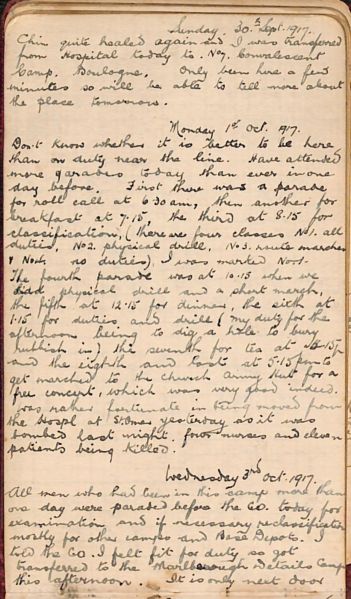 Sunday 30th Sept. 1917.
Chin quite healed again and I was transferred
from Hospital today to No 7. Convalescent
Camp. Boulogne. Only been here a few
minutes so will be able to tell more about
the place tomorrow.
Monday 1st Oct. 1917.
Don't know whether it is better to be here
than on duty near the line. Have attended
more parades today than ever in one
day before. First there was a parade
for roll call at 6.30 am, then another for
breakfast at 7.15, the third at 8.15 for
classification, (there are four classes No 1. all
duties, No 2. physical drill, No 3. route marches
& No 4. no duties), I was marked No 1.
The fourth parade was at 10.15 when we
did physical drill and a short march,
the fifth at 12.15 for dinner, the sixth at
1.15 for duties and drill (my duty for the
afternoon being to dig a hole to bury
rubbish in) the seventh for tea at 5.15 pm
and the eighth and last at 5.15 pm to
get marched to the Church Army Hut for a
free concert, which was very good indeed.
Was rather fortunate in being moved from
the Hospl at St Omer yesterday as it was
bombed last night, four nurses and eleven
patients being killed.
Wednesday 3rd Oct. 1917.
All men who had been in this camp more than
one day were paraded before the C.O. today for
examination and if necessary reclassification
mostly for other camps and Base Depots. I
told the C.O. I felt fit for duty so got
transferred to the Marlborough Details Camp
this afternoon. It is only next door